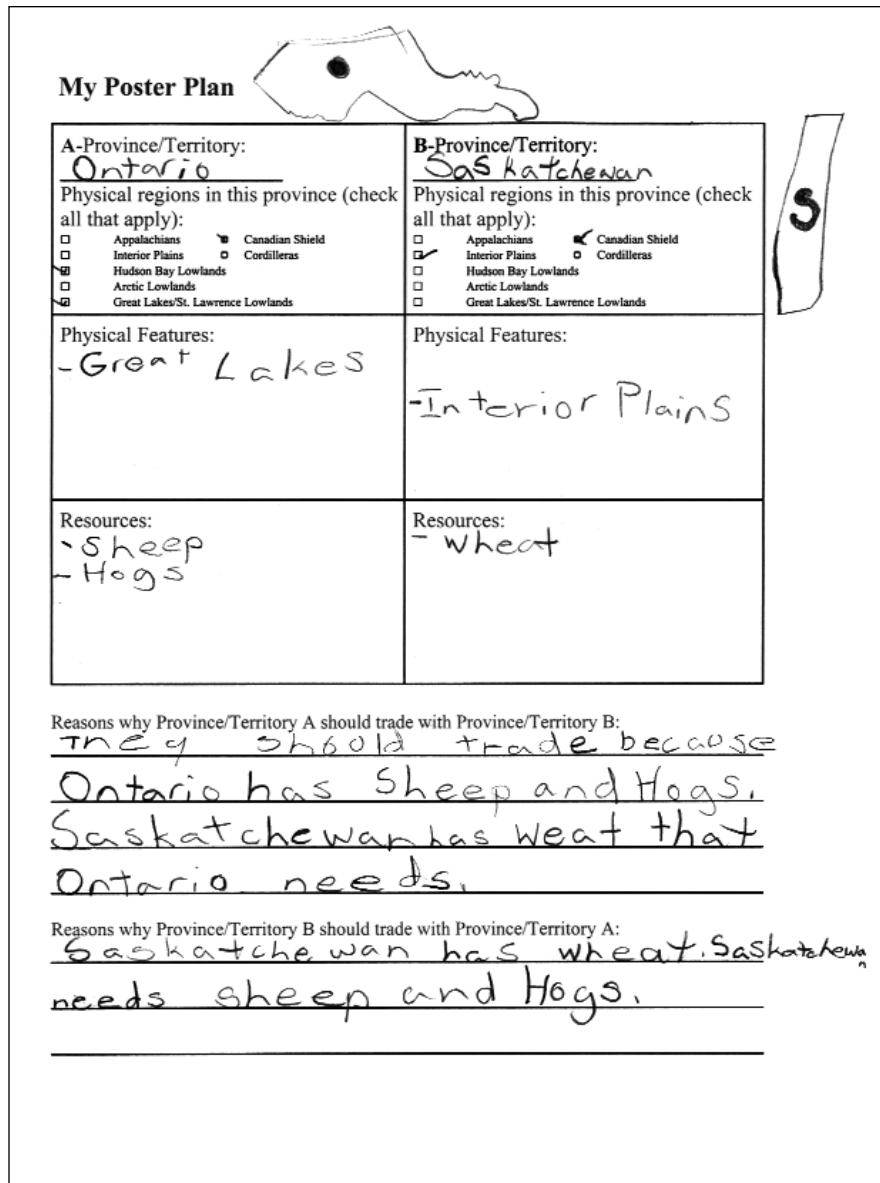 My Poster Plan
A-Province/Territory:
Ontario
Physical regions in this province (check
all that apply):
Appalachians Canadian Shield
Interior Plains Cordilleras
Hudson Bay Lowlands
Arctic Lowlands
Great Lakes/St. Lawrence Lowlands
B-Province/Territory:
Saskatchewan
Physical regions in this province (check
all that apply):
Appalachians Canadian Shield
Interior Plains Cordilleras
Hudson Bay Lowlands
Arctic Lowlands
Great Lakes/St. Lawrence Lowlands
S
Physical Features:
- Great Lakes
Physical Features:
- Interior Plains
Resources:
- Sheep
- Hogs
Resources:
- Wheat
Reasons why Province/Territory A should trade with Province/Territory B:
They should trade because
Ontario has Sheep and Hogs.
Saskatchewan has weat that
Ontario needs.
Reasons why Province/Territory B should trade with Province/Territory A:
Saskatchewan has wheat. Saskatchewan
needs sheep and Hogs.